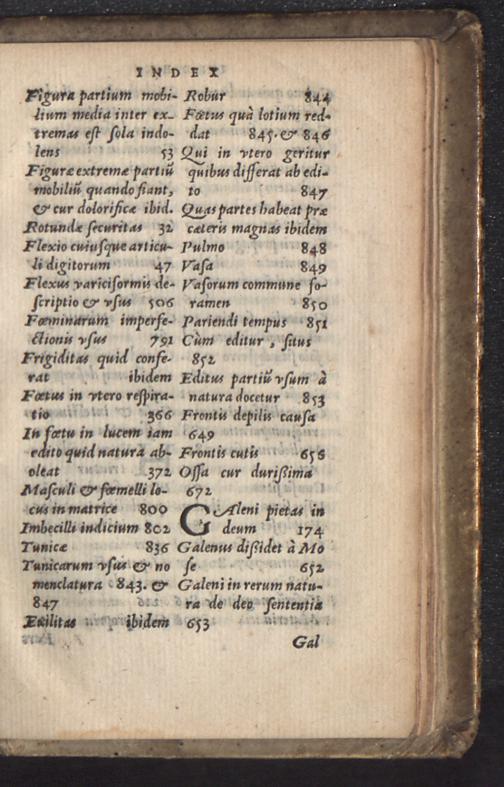 INDEX
Figura partium mobi-
lium media inter ex-
tremas est sola indo-
lens 53
Figuræ extremæ partiũ
mobiliũ quando fiant,
& cur dolorificæ ibid.
Rotundæ securitas 32
Flexio cuiusque articu-
li digitorum 47
Flexus variciformis de-
scriptio & vsus 506
Fœminarum imperfe-
ctionis vsus 791
Frigiditas quid confe-
rat ibidem
Fœtus in vtero respira-
tio 366
In fœtu in lucem iam
edito quid natura ab-
oleat 372
Masculi & fœmelli lo-
cus in matrice 800
Imbecilli indicium 802
Tunicæ 836
Tunicarum vsus & no
menclatura 843. &
847
Exilitas ibidem
Robur 844
Fœtus quà lotium red-
dat 845. & 846
Qui in vtero geritur
quibus differat ab edi-
to 847
Quas partes habeat præ
cæteris magnas ibidem
Pulmo 848
Vasa 849
Vasorum commune fo-
ramen 850
Pariendi tempus 851
Cùm editur, situs
852
Editus partiũ vsum à
natura docetur 853
Frontis depilis causa
649
Frontis cutis 656
Ossa cur durißima
672
GAleni pietas in
deum 174
Galenus dißidet à Mo
se 652
Galeni in rerum natu-
ra de deo sententia
653
Gal